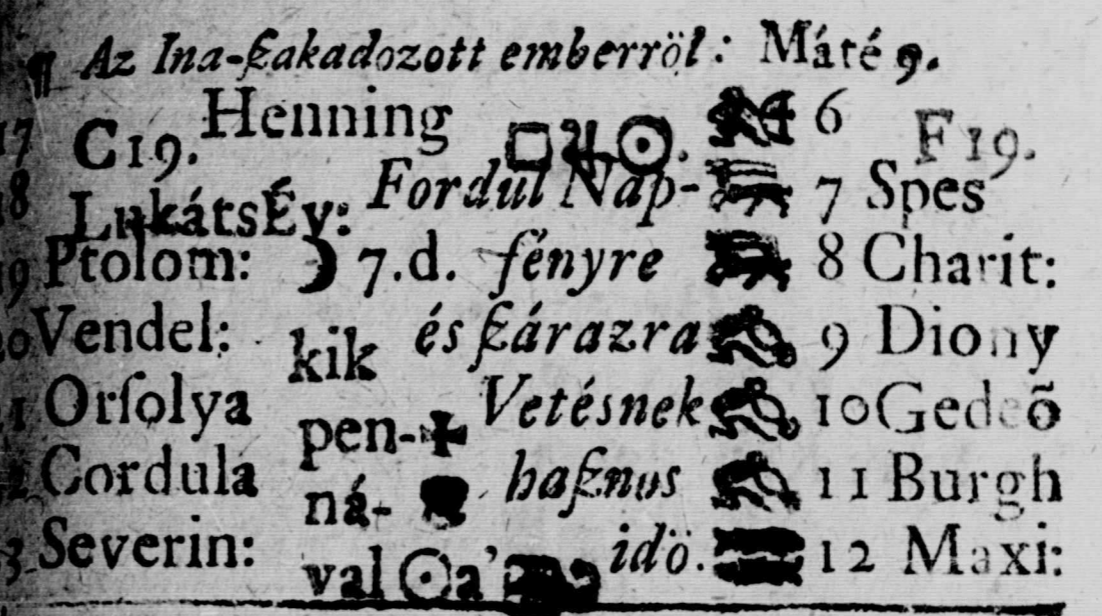 ¶ Az Ina-ſzakadozott emberröl: Máté 9.
17 C19. Henning □♃☉. 6 F19.
18 LukátsÉv: Fordul Nap- 7 Spes
19 Ptolom: ☽ 7.d. fényre 8 Charit:
20 Vendel: kik és ſzárazra 9 Diony
1 Orſolya pen- Vetésnek 10 Gedeõ
2 Cordula ná- haſznos 11 Burgh
3 Severin: val ☉ a' idö. 12 Maxi: